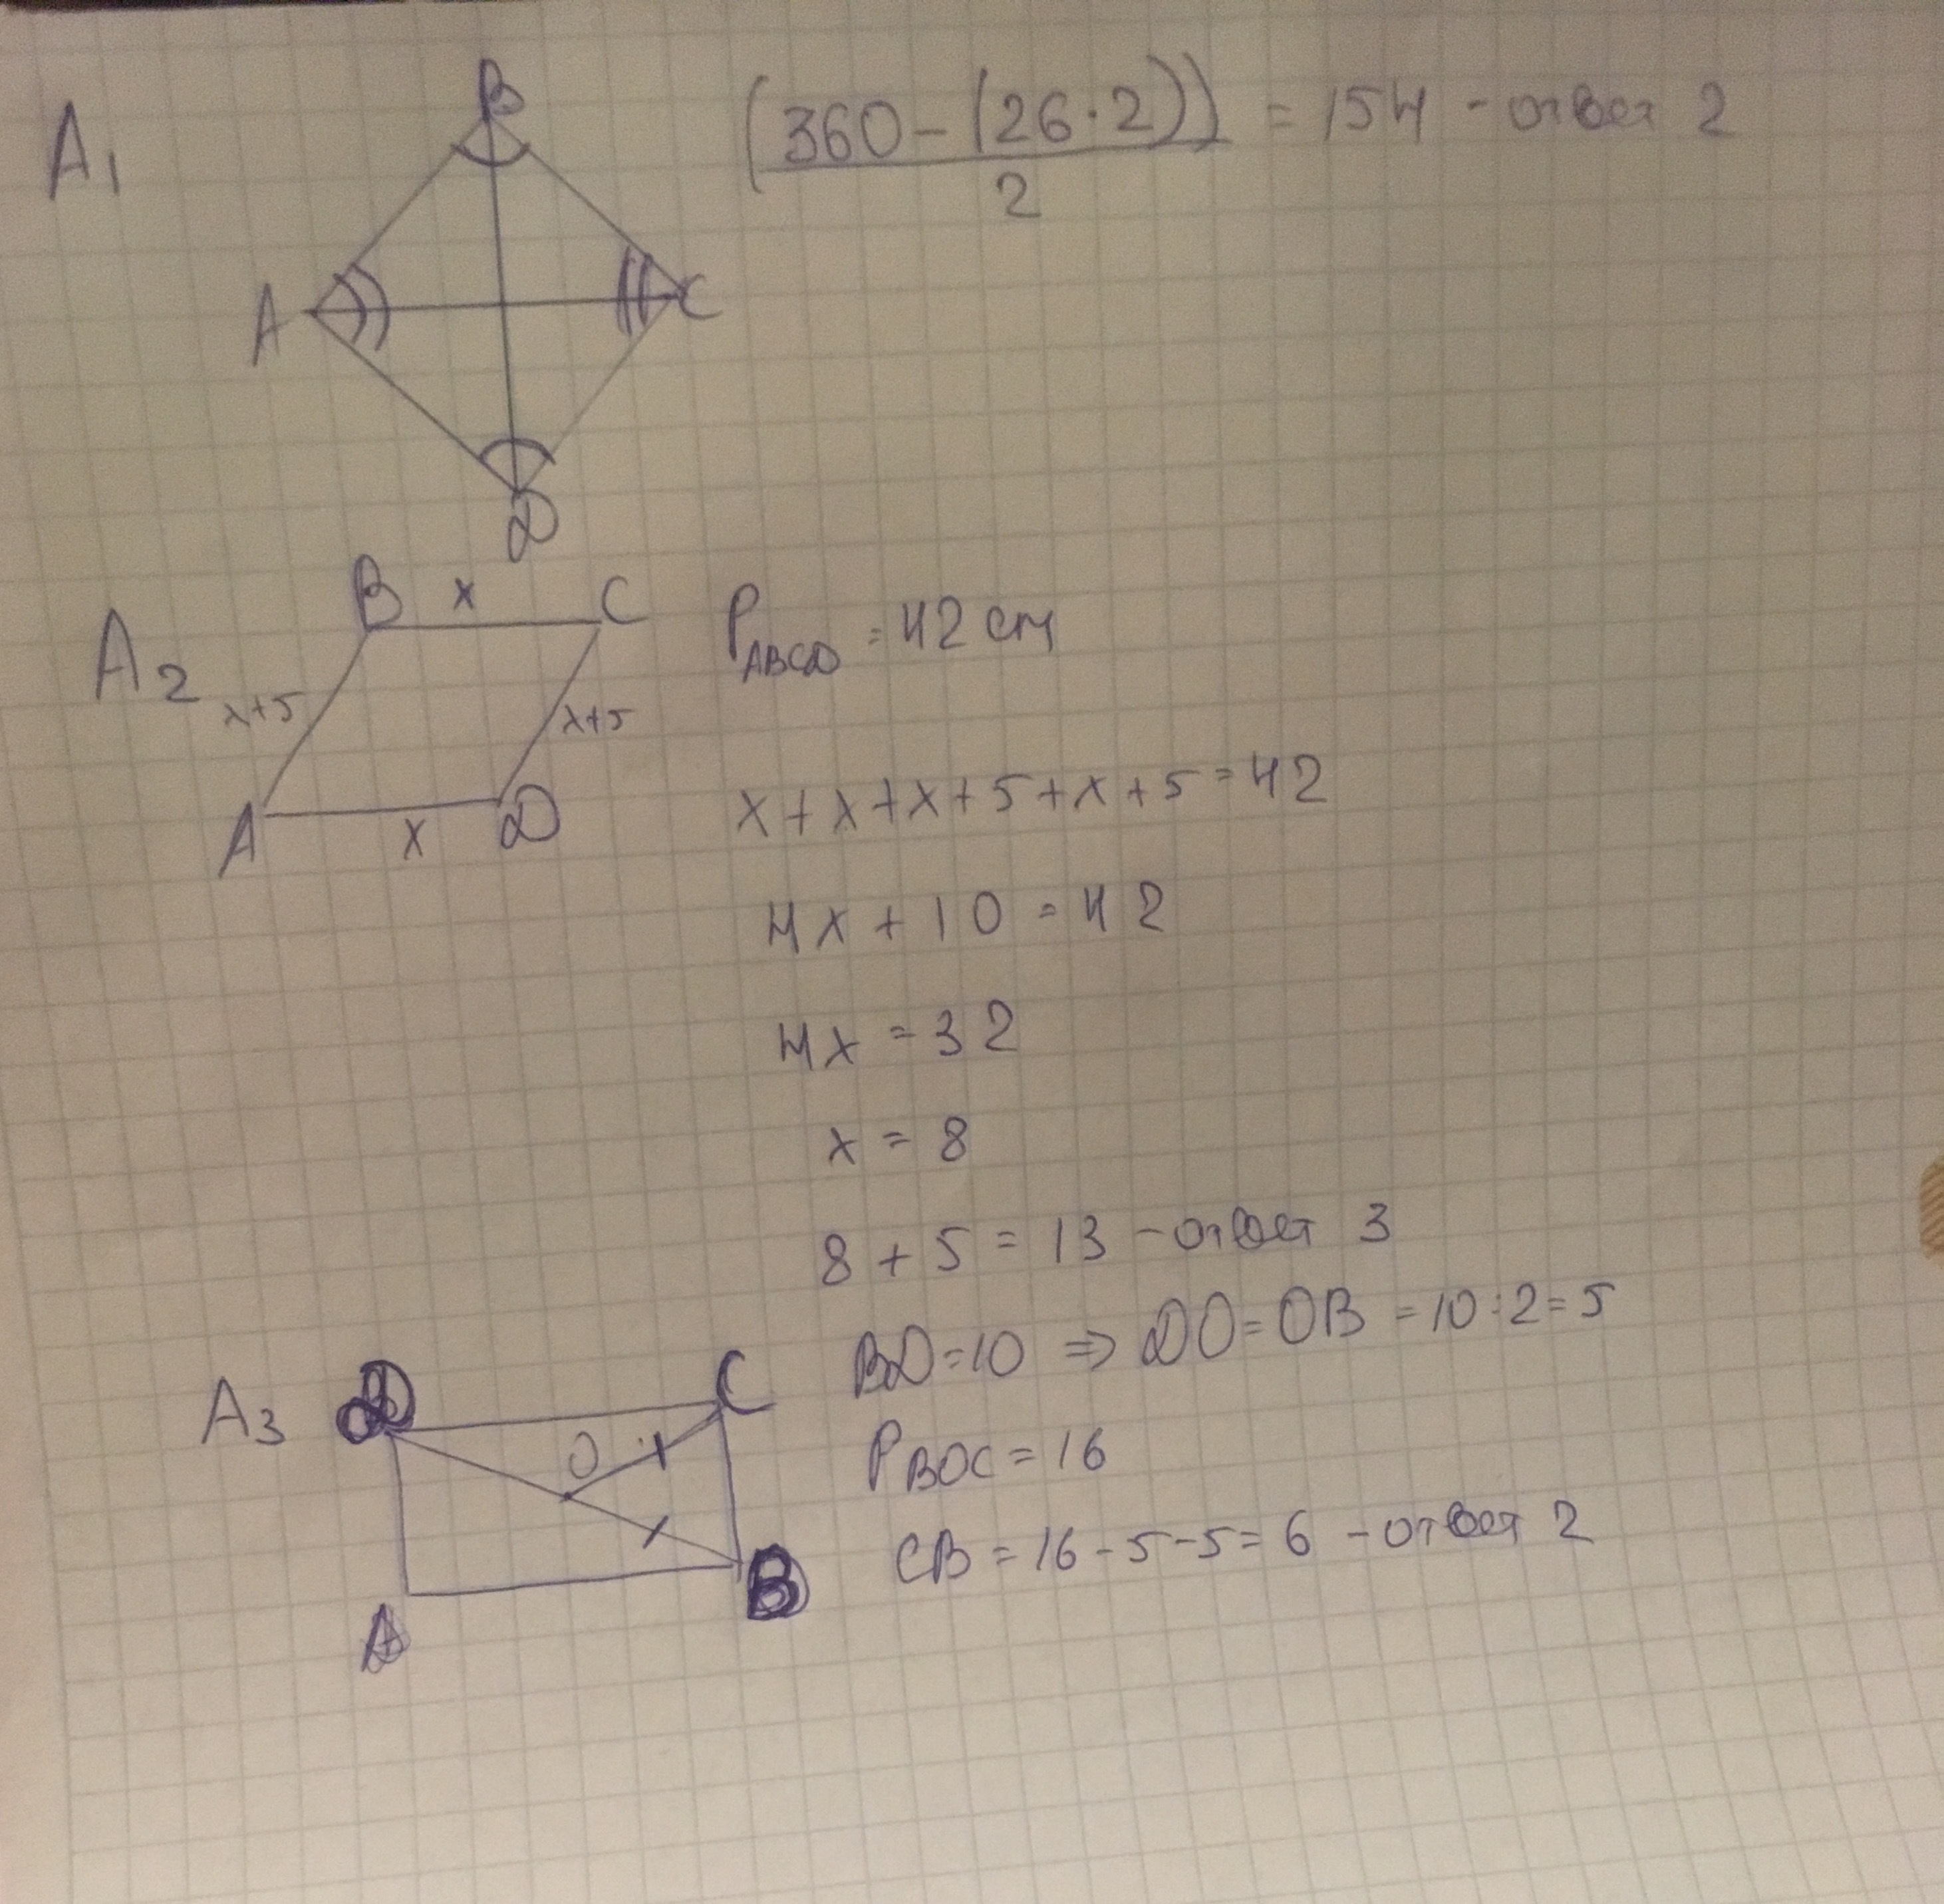 A1
B
A
C
D
(360-(26·2))/2 = 154 - ответ 2
A2
B x C
x+5
x+5
A x D
PABCD = 42 см
x+x+x+5+x+5=42
4x+10=42
4x=32
x=8
8+5=13 - ответ 3
A3
D
C
O
A
B
BD=10 ⇒ DO=OB=10:2=5
PBOC=16
CB=16-5-5=6 - ответ 2